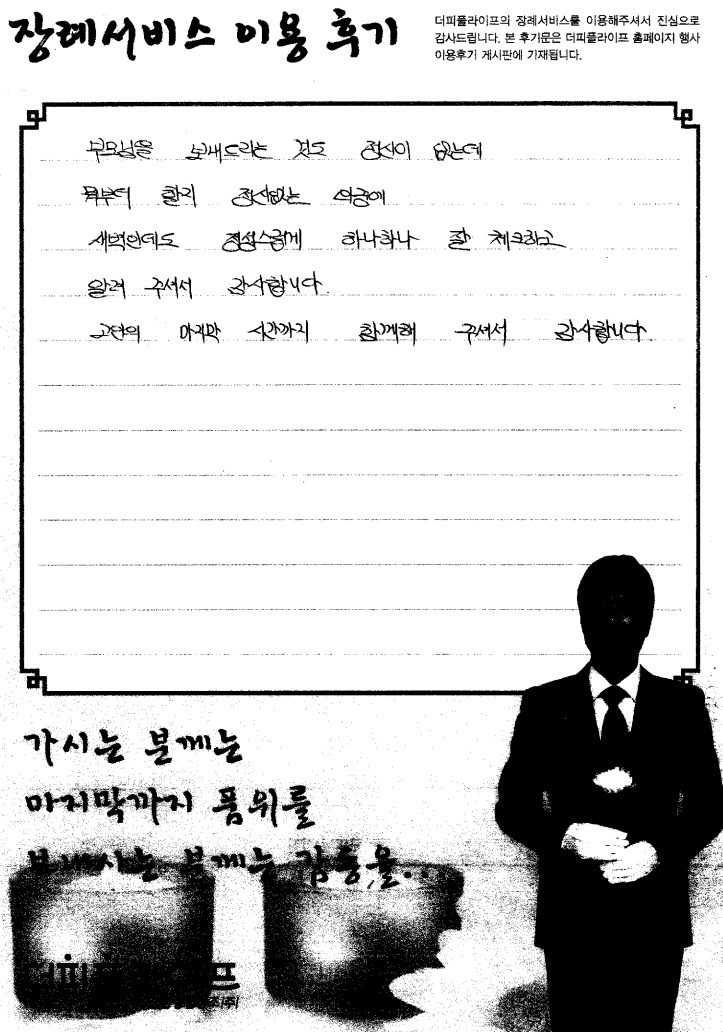 장례서비스 이용 후기
더피플라이프의 장례서비스를 이용해주셔서 진심으로
감사드립니다. 본 후기문은 더피플라이프 홈페이지 행사
이용후기 게시판에 기재됩니다.
부모님을 보내드리는 것도 정신이 없는데
부터 할지 정신없는 와중에
새벽인데도 정성스럽게 하나하나 잘 체크하고
알려 주셔서 감사합니다
고단의 마지막 시간까지 함께해 주셔서 감사합니다
가시는 분께는
마지막까지 품위를
보내시는 분께는 감동을..